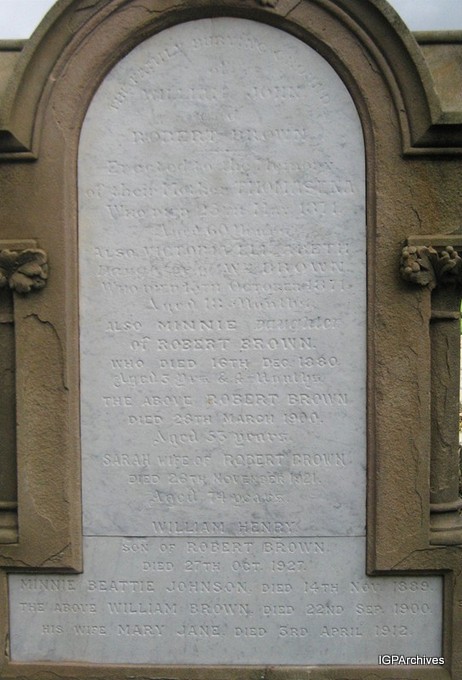 THE FAMILY BURYING GROUND
of
WILLIAM JOHN
and
ROBERT BROWN.
Erected to the Memory
of their Mother THOMASINA
Who Died 13th May 1871
Aged 60 Years.
ALSO VICTORIA ELIZABETH
Daughter of Wm BROWN.
Who Died 15th October 1871.
Aged 18 Months.
ALSO MINNIE Daughter
of ROBERT BROWN.
WHO DIED 16TH DEC. 1880
Aged 3 Yrs & Months.
THE ABOVE ROBERT BROWN
DIED 28TH MARCH 1900.
Aged 55 years.
SARAH WIFE OF ROBERT BROWN.
DIED 28TH NOVEMBER 1921.
Aged 74 years.
WILLIAM HENRY
SON OF ROBERT BROWN.
DIED 27TH OCT. 1927.
MINNIE BEATTIE JOHNSON, DIED 14TH NOV. 1889.
THE ABOVE WILLIAM BROWN, DIED 22ND SEP. 1900.
HIS WIFE MARY JANE, DIED 3RD APRIL 1912.
IGPArchives